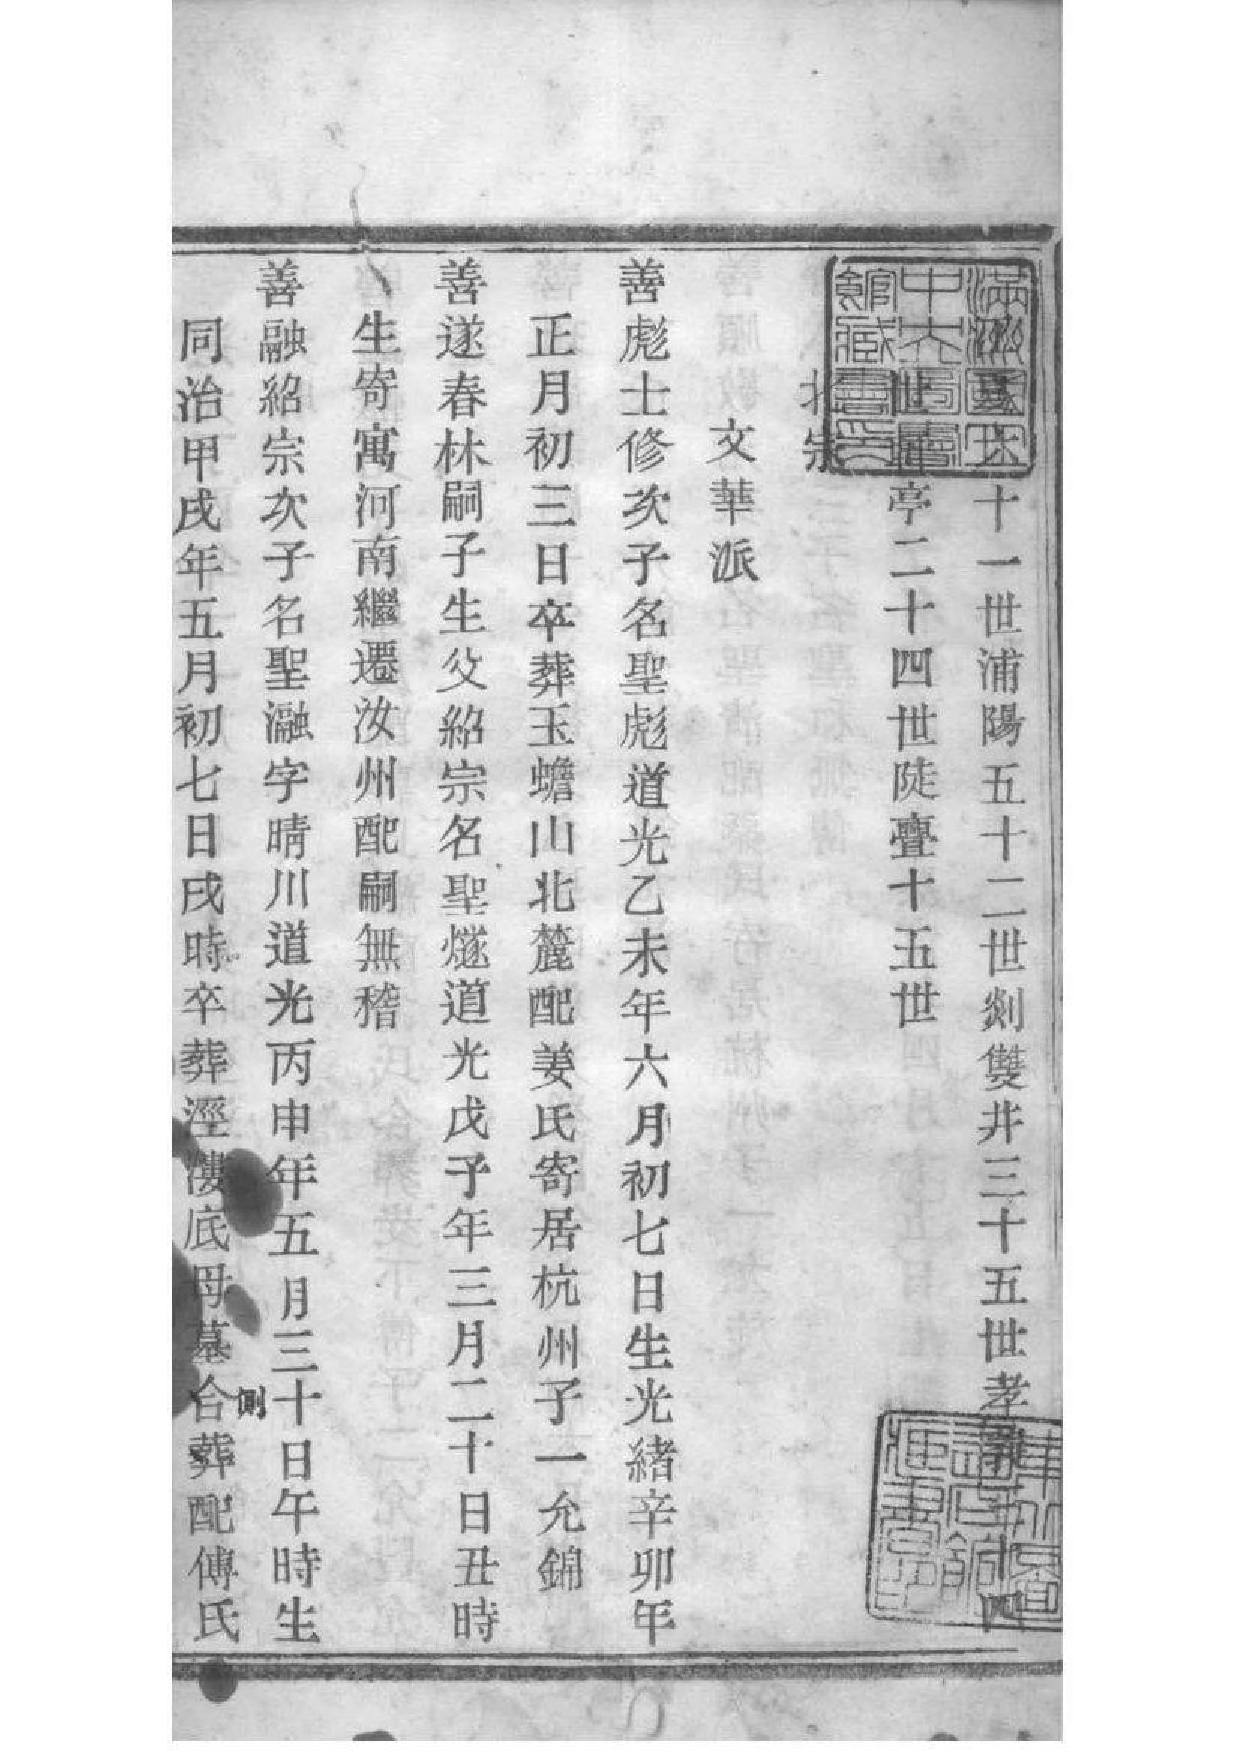 十一世浦陽五十二世剡雙井三十五世孝
世
亭二十四世陡亹十五世
北宗
文華派
善彪士修次子名聖彪道光乙未年六月初七日生光緒辛卯年
正月初三日卒葬玉蟾山北麓配姜氏寄居杭州子一允錦
善遂春林嗣子生父紹宗名聖燧道光戊子年三月二十日丑時
生寄寓河南繼遷汝州配嗣無稽
善融紹宗次子名聖瀜字晴川道光丙申年五月三十日午時生
同治甲戌年五月初七日戌時卒葬瀅漊底母墓側合葬配傅氏